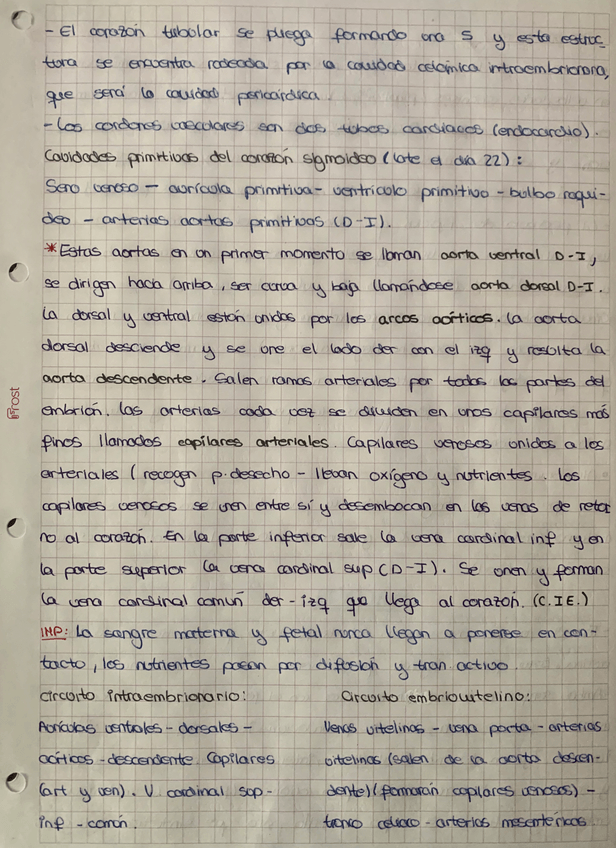 - El corazón tubolar se pliega formando una S y esta estruc
tura se encuentra rodeada por la cavidad celómica intraembrionaria,
que será la cavidad pericárdica.
- Los cordones vasculares son dos tubos cardiacos (endocardio).
Cavidades primitivas del corazón sigmoideo (late el día 22):
Seno venoso - aurícula primitiva - ventrículo primitivo - bulbo raquí-
deo - arterias aortas primitivas (D-I).
*Estas aortas en un primer momento se llaman aorta ventral D-I,
se dirigen hacia arriba, ser curva y baja llamándose aorta dorsal D-I.
La dorsal y ventral están unidas por los arcos aórticos. La aorta
dorsal desciende y se une el lado der con el izq y resulta la
aorta descendente. Salen ramas arteriales por todas las partes del
embrión. Las arterias cada vez se dividen en unos capilares más
finos llamados capilares arteriales. Capilares venosos unidos a los
arteriales (recogen p. desecho - llevan oxígeno y nutrientes. Los
capilares venosos se unen entre sí y desembocan en las venas de retor
no al corazón. En la parte inferior sale la vena cardinal inf y en
la parte superior la vena cardinal sup (D-I). Se unen y forman
la vena cardinal común der-izq que llega al corazón. (C.IE.)
IMP: La sangre materna y fetal nunca llegan a ponerse en con-
tacto, los nutrientes pasan por difusión y tran activo.
Circuito intraembrionario:
Aurículas ventrales - dorsales -
aórticos - descendente Capilares
(art y ven). V cardinal sup -
inf - común.
Circuito embriovitelino:
Venas vitelinas - vena porta - arterias
vitelinas (salen de la aorta descen-
dente) (formarán capilares venosos) -
tronco celiaco - arterias mesentéricas
Frost